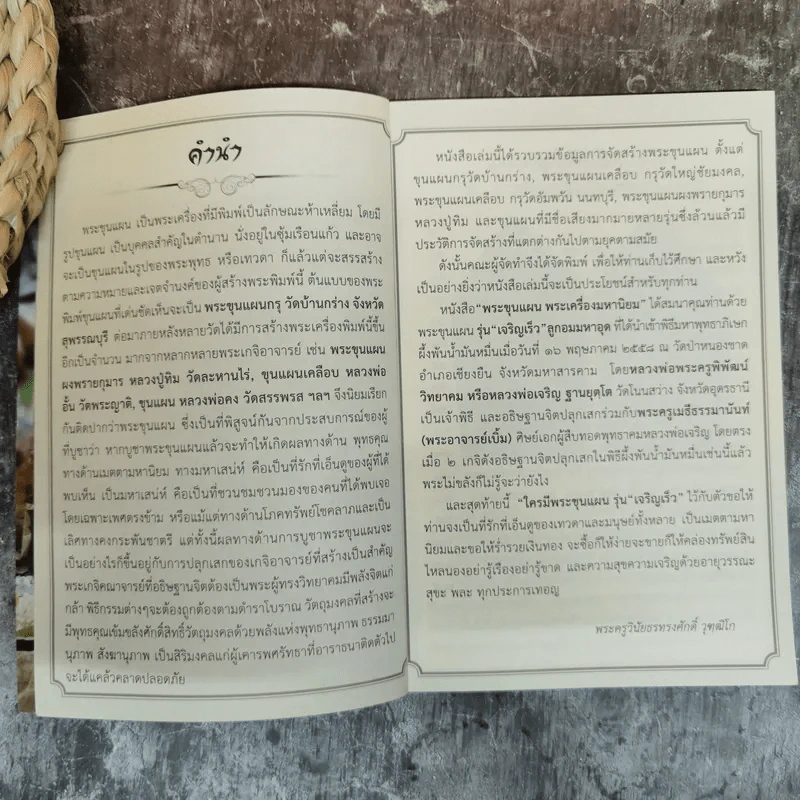 คำนำ
พระขุนแผน เป็นพระเครื่องที่มีพิมพ์เป็นลักษณะห้าเหลี่ยม โดยมี
รูปขุนแผน เป็นบุคคลสำคัญในตำนาน นั่งอยู่ในซุ้มเรือนแก้ว และอาจ
จะเป็นขุนแผนในรูปของพระพุทธ หรือเทวดา ก็แล้วแต่จะสรรสร้าง
ตามความหมายและเจตจำนงค์ของผู้สร้างพระพิมพ์นี้ ต้นแบบของพระ
พิมพ์ขุนแผนที่เด่นชัดเห็นจะเป็น พระขุนแผนกรุ วัดบ้านกร่าง จังหวัด
สุพรรณบุรี ต่อมาภายหลังหลายวัดได้มีการสร้างพระเครื่องพิมพ์นี้ขึ้น
อีกเป็นจำนวน มากจากหลากหลายพระเกจิอาจารย์ เช่น พระขุนแผน
ผงพรายกุมาร หลวงปู่ทิม วัดละหานไร่, ขุนแผนเคลือบ หลวงพ่อ
อั้น วัดพระญาติ, ขุนแผน หลวงพ่อคง วัดสรรพรส ฯลฯ จึงนิยมเรียก
กันติดปากว่าพระขุนแผน ซึ่งเป็นที่พิสูจน์กันจากประสบการณ์ของผู้
ที่บูชาว่า หากบูชาพระขุนแผนแล้วจะทำให้เกิดผลทางด้าน พุทธคุณ
ทางด้านเมตตามหานิยม ทางมหาเสน่ห์ คือเป็นที่รักที่เอ็นดูของผู้ที่ได้
พบเห็น เป็นมหาเสน่ห์ คือเป็นที่ชวนชมชวนมองของคนที่ได้พบเจอ
โดยเฉพาะเพศตรงข้าม หรือแม้แต่ทางด้านโภคทรัพย์โชคลาภและเป็น
เลิศทางคงกระพันชาตรี แต่ทั้งนี้ผลทางด้านการบูชาพระขุนแผนจะ
เป็นอย่างไรก็ขึ้นอยู่กับการปลุกเสกของเกจิอาจารย์ที่สร้างเป็นสำคัญ
พระเกจิคณาจารย์ที่อธิษฐานจิตต้องเป็นพระผู้ทรงวิทยาคมมีพลังจิตแก่
กล้า พิธีกรรมต่างๆจะต้องถูกต้องตามตำราโบราณ วัตถุมงคลที่สร้างจะ
มีพุทธคุณเข้มขลังศักดิ์สิทธิ์วัตถุมงคลด้วยพลังแห่งพุทธานุภาพ ธรรมมา
นุภาพ สังฆานุภาพ เป็นสิริมงคลแก่ผู้เคารพศรัทธาที่อาราธนาติดตัวไป
จะได้แคล้วคลาดปลอดภัย
หนังสือเล่มนี้ได้รวบรวมข้อมูลการจัดสร้างพระขุนแผน ตั้งแต่
ขุนแผนกรุวัดบ้านกร่าง, พระขุนแผนเคลือบ กรุวัดใหญ่ชัยมงคล,
พระขุนแผนเคลือบ กรุวัดอัมพวัน นนทบุรี, พระขุนแผนผงพรายกุมาร
หลวงปู่ทิม และขุนแผนที่มีชื่อเสียงมากมายหลายรุ่นซึ่งล้วนแล้วมี
ประวัติการจัดสร้างที่แตกต่างกันไปตามยุคตามสมัย
ดังนั้นคณะผู้จัดทำจึงได้จัดพิมพ์ เพื่อให้ท่านเก็บไว้ศึกษา และหวัง
เป็นอย่างยิ่งว่าหนังสือเล่มนี้จะเป็นประโยชน์สำหรับทุกท่าน
หนังสือ"พระขุนแผน พระเครื่องมหานิยม" ได้สมนาคุณท่านด้วย
พระขุนแผน รุ่น"เจริญเร็ว"ลูกอมมหาอุด ที่ได้นำเข้าพิธีมหาพุทธาภิเษก
ผึ้งพันน้ำมันหมื่นเมื่อวันที่ ๑๖ พฤษภาคม ๒๕๕๘ ณ วัดป่าหนองชาด
อำเภอเชียงยืน จังหวัดมหาสารคาม โดยหลวงพ่อพระครูพิพัฒน์
วิทยาคม หรือหลวงพ่อเจริญ ฐานยุตโต วัดโนนสว่าง จังหวัดอุดรธานี
เป็นเจ้าพิธี และอธิษฐานจิตปลุกเสกร่วมกับพระครูเมธีธรรมานันท์
(พระอาจารย์เบิ้ม) ศิษย์เอกผู้สืบทอดพุทธาคมหลวงพ่อเจริญ โดยตรง
เมื่อ ๒ เกจิดังอธิษฐานจิตปลุกเสกในพิธีผึ้งพันน้ำมันหมื่นเช่นนี้แล้ว
พระไม่ขลังก็ไม่รู้จะว่ายังไง
และสุดท้ายนี้ "ใครมีพระขุนแผน รุ่น"เจริญเร็ว" ไว้กับตัวขอให้
ท่านจงเป็นที่รักที่เอ็นดูของเทวดาและมนุษย์ทั้งหลาย เป็นเมตตามหา
นิยมและขอให้ร่ำรวยเงินทอง จะซื้อก็ให้ง่ายจะขายก็ให้คล่องทรัพย์สิน
ไหลนองอย่ารู้เรื่องอย่ารู้ขาด และความสุขความเจริญด้วยอายุวรรณะ
สุขะ พละ ทุกประการเทอญ
พระครูวินัยธรทรงศักดิ์ วุฑฒิโก